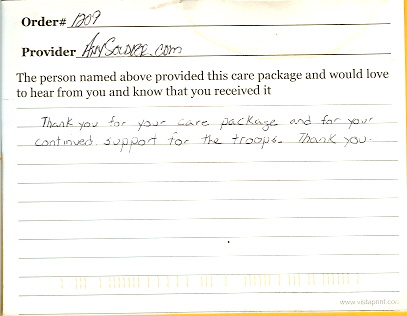 Order# 1209
Provider AnySoldier.com
The person named above provided this care package and would love
to hear from you and know that you received it
Thank you for your care package and for your
continued support for the troops. Thank you.
www.vistaprint.com